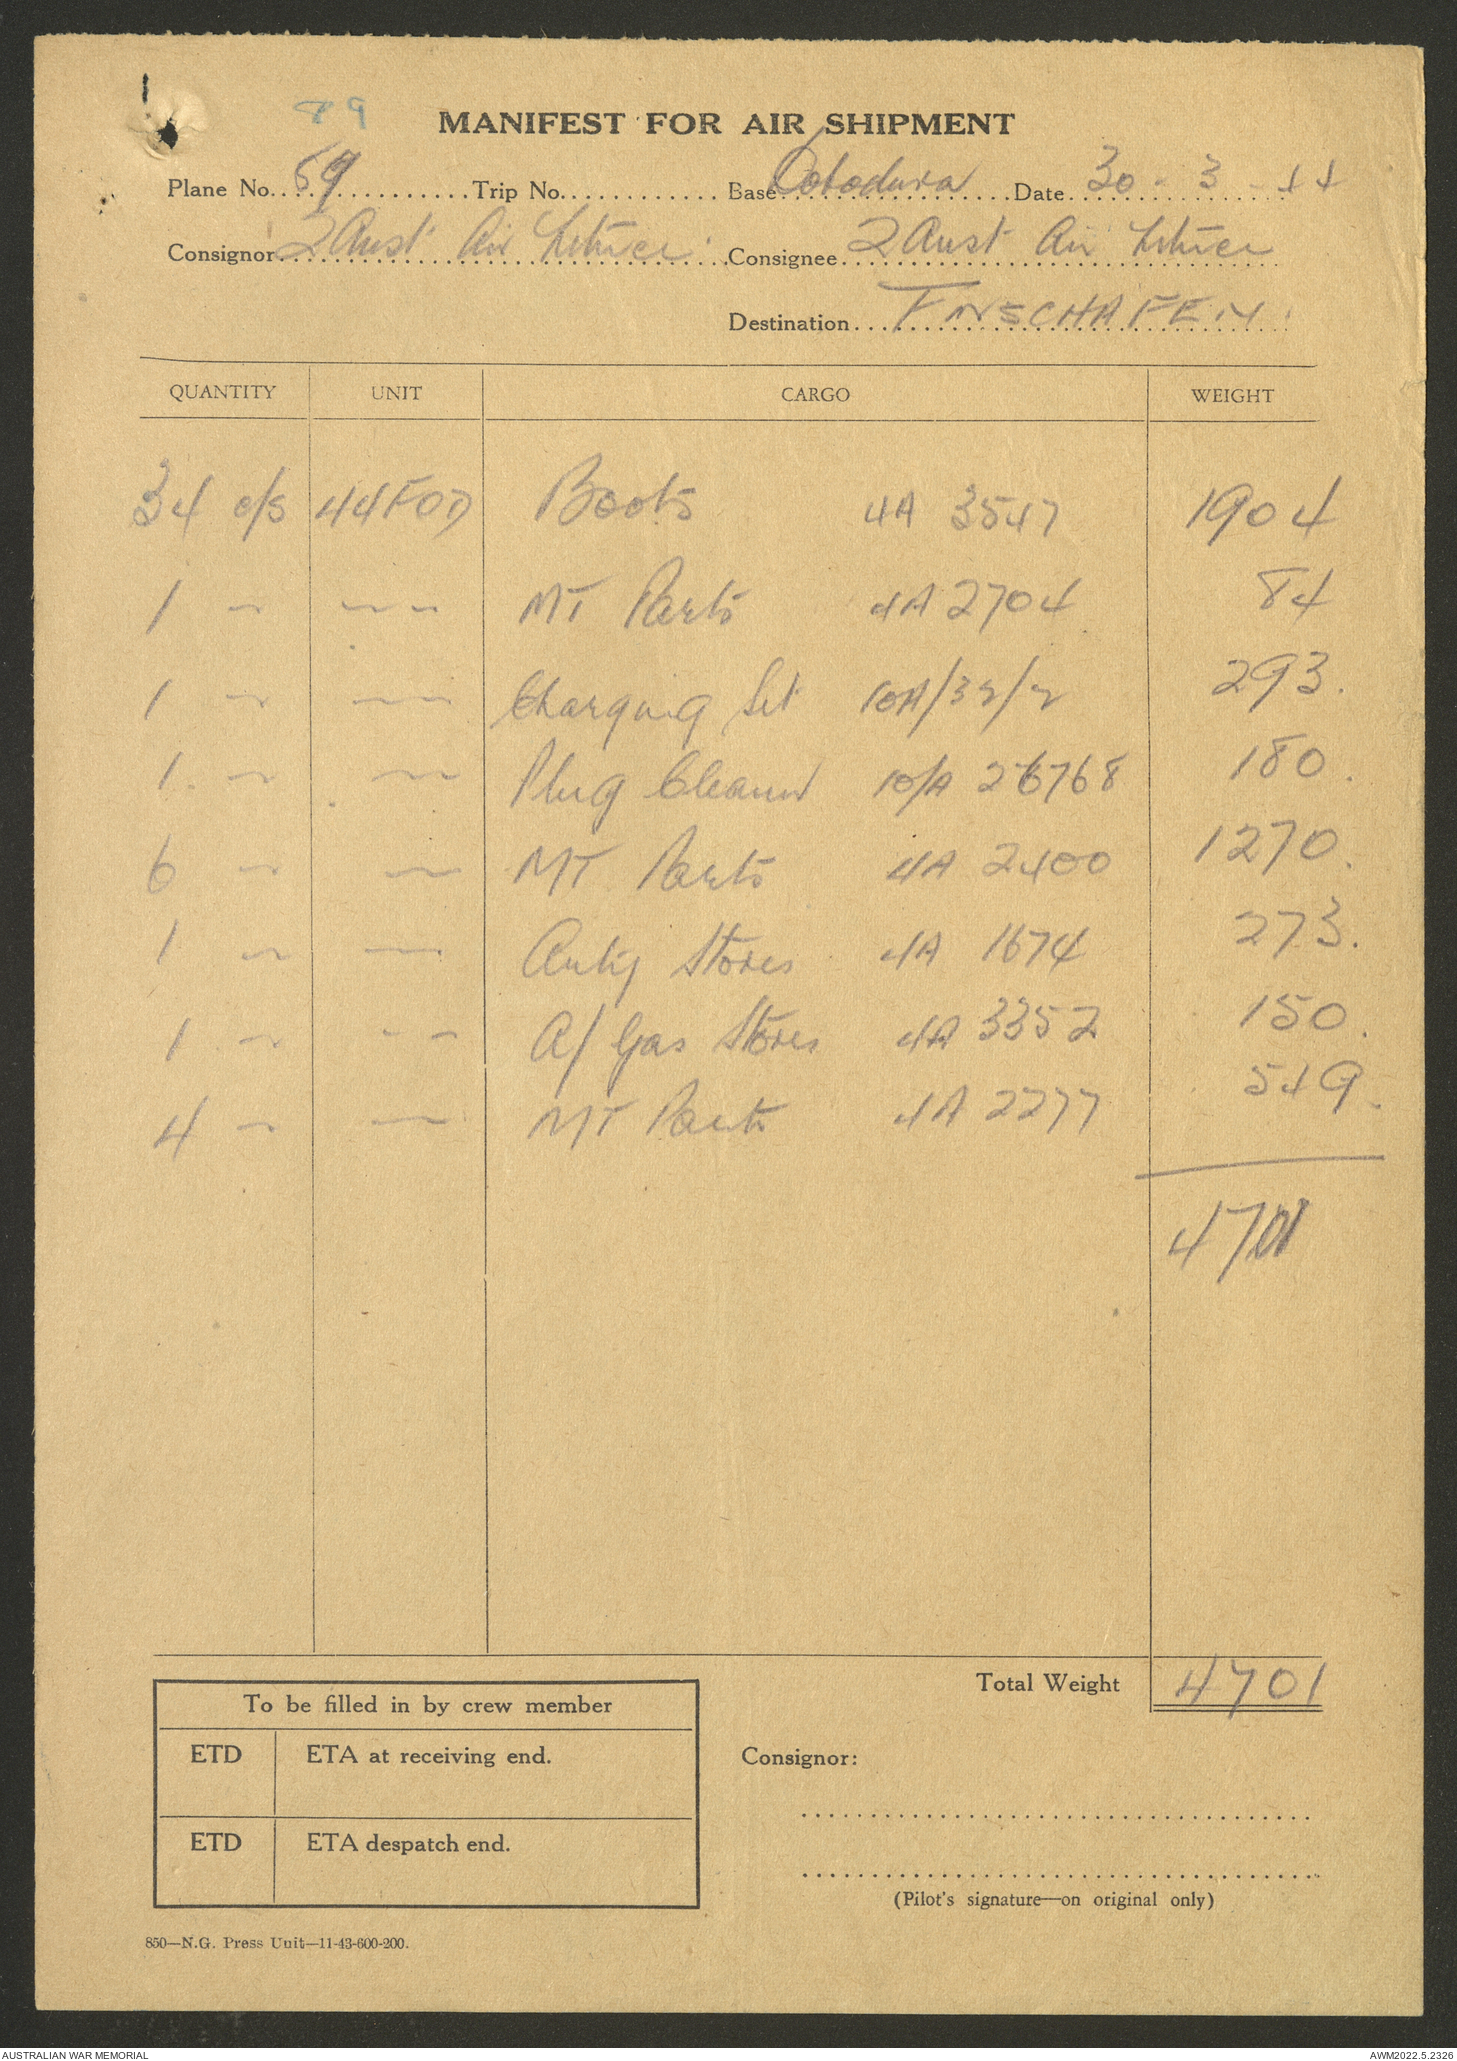 89
MANIFEST FOR AIR SHIPMENT
Plane No. 59 Trip No. Base Dobodura Date 30-3-44
Consignor 2 Aust Air Consignee 2 Aust Air
Destination FINSCHAFEN
QUANTITY UNIT CARGO WEIGHT
34 c/s 44 FOD Boots 4A 3547 1904
1 " " MT Parts 4A 2704 84
1 " " Charging Set 10A/32/2 293.
1 " " Plug Cleaner 10/A 26768 180.
6 " " MT Parts 4A 2400 1270.
1 " " Stores 4A 1674 273.
1 " " A/ Gas Stores 4A 3352 150.
4 " " MT Parts 4A 2277 549.
4701
Total Weight 4701
To be filled in by crew member
ETD ETA at receiving end.
Consignor:
ETD ETA despatch end.
(Pilot's signature—on original only)
850—N.G. Press Unit—11-43-600-200.
AUSTRALIAN WAR MEMORIAL AWM2022.5.2326